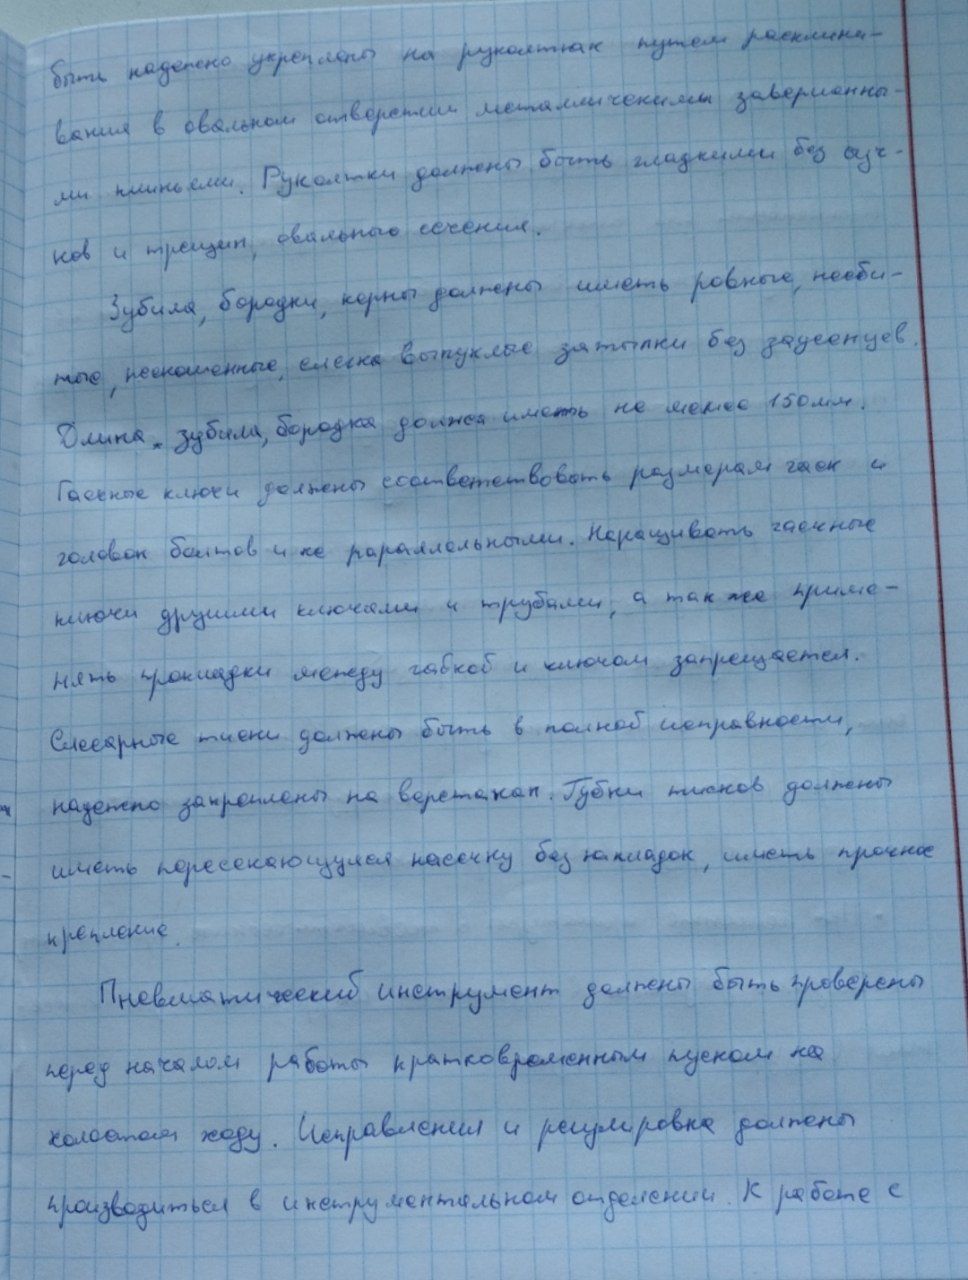 быть надежно укреплены на рукоятках путем расклини-
вания в овальном отверстии металлическими завершенны-
ми клиньями. Рукоятки должны быть гладкими без суч-
ков и трещин, овального сечения.
Зубила, бородки, керны должны иметь ровные, несби-
тые, нескошенные, слегка выпуклые затылки без заусенцев.
Длина зубила, бородка должна иметь не менее 150мм.
Гаечные ключи должны соответствовать размерам гаек и
головок болтов и не параллельными. Наращивать гаечные
ключи другими ключами и трубами, а так же приме-
нять прокладки между гайкой и ключом запрещается.
Слесарные тиски должны быть в полной исправности,
надежно закреплены на верстаках. Губки тисков должны
иметь пересекающуюся насечку без накладок, иметь прочное
крепление.
Пневматический инструмент должны быть проверены
перед началом работы кратковременным пуском на
холостом ходу. Исправления и регулировка должны
производиться в инструментальном отделении. К работе с